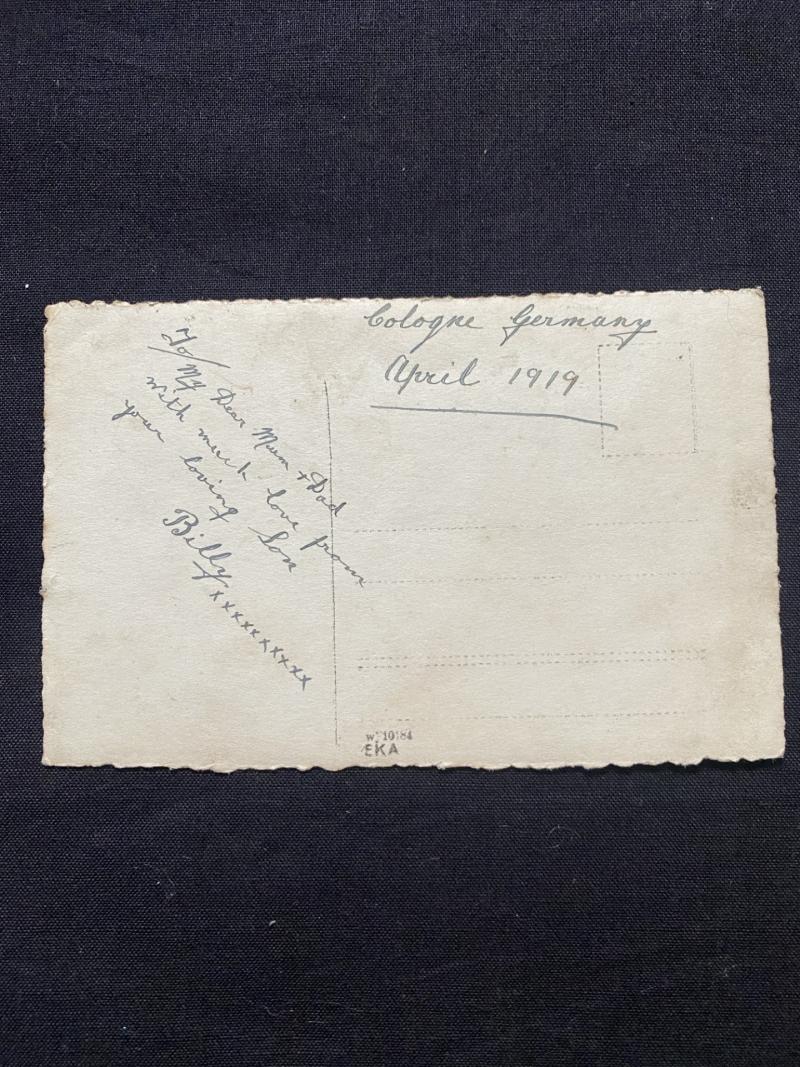 To/
My Dear Mum & Dad
With much love from
your loving Son
Billy xxxxxxxxxx
Cologne Germany
April 1919
W. 10184
EKA